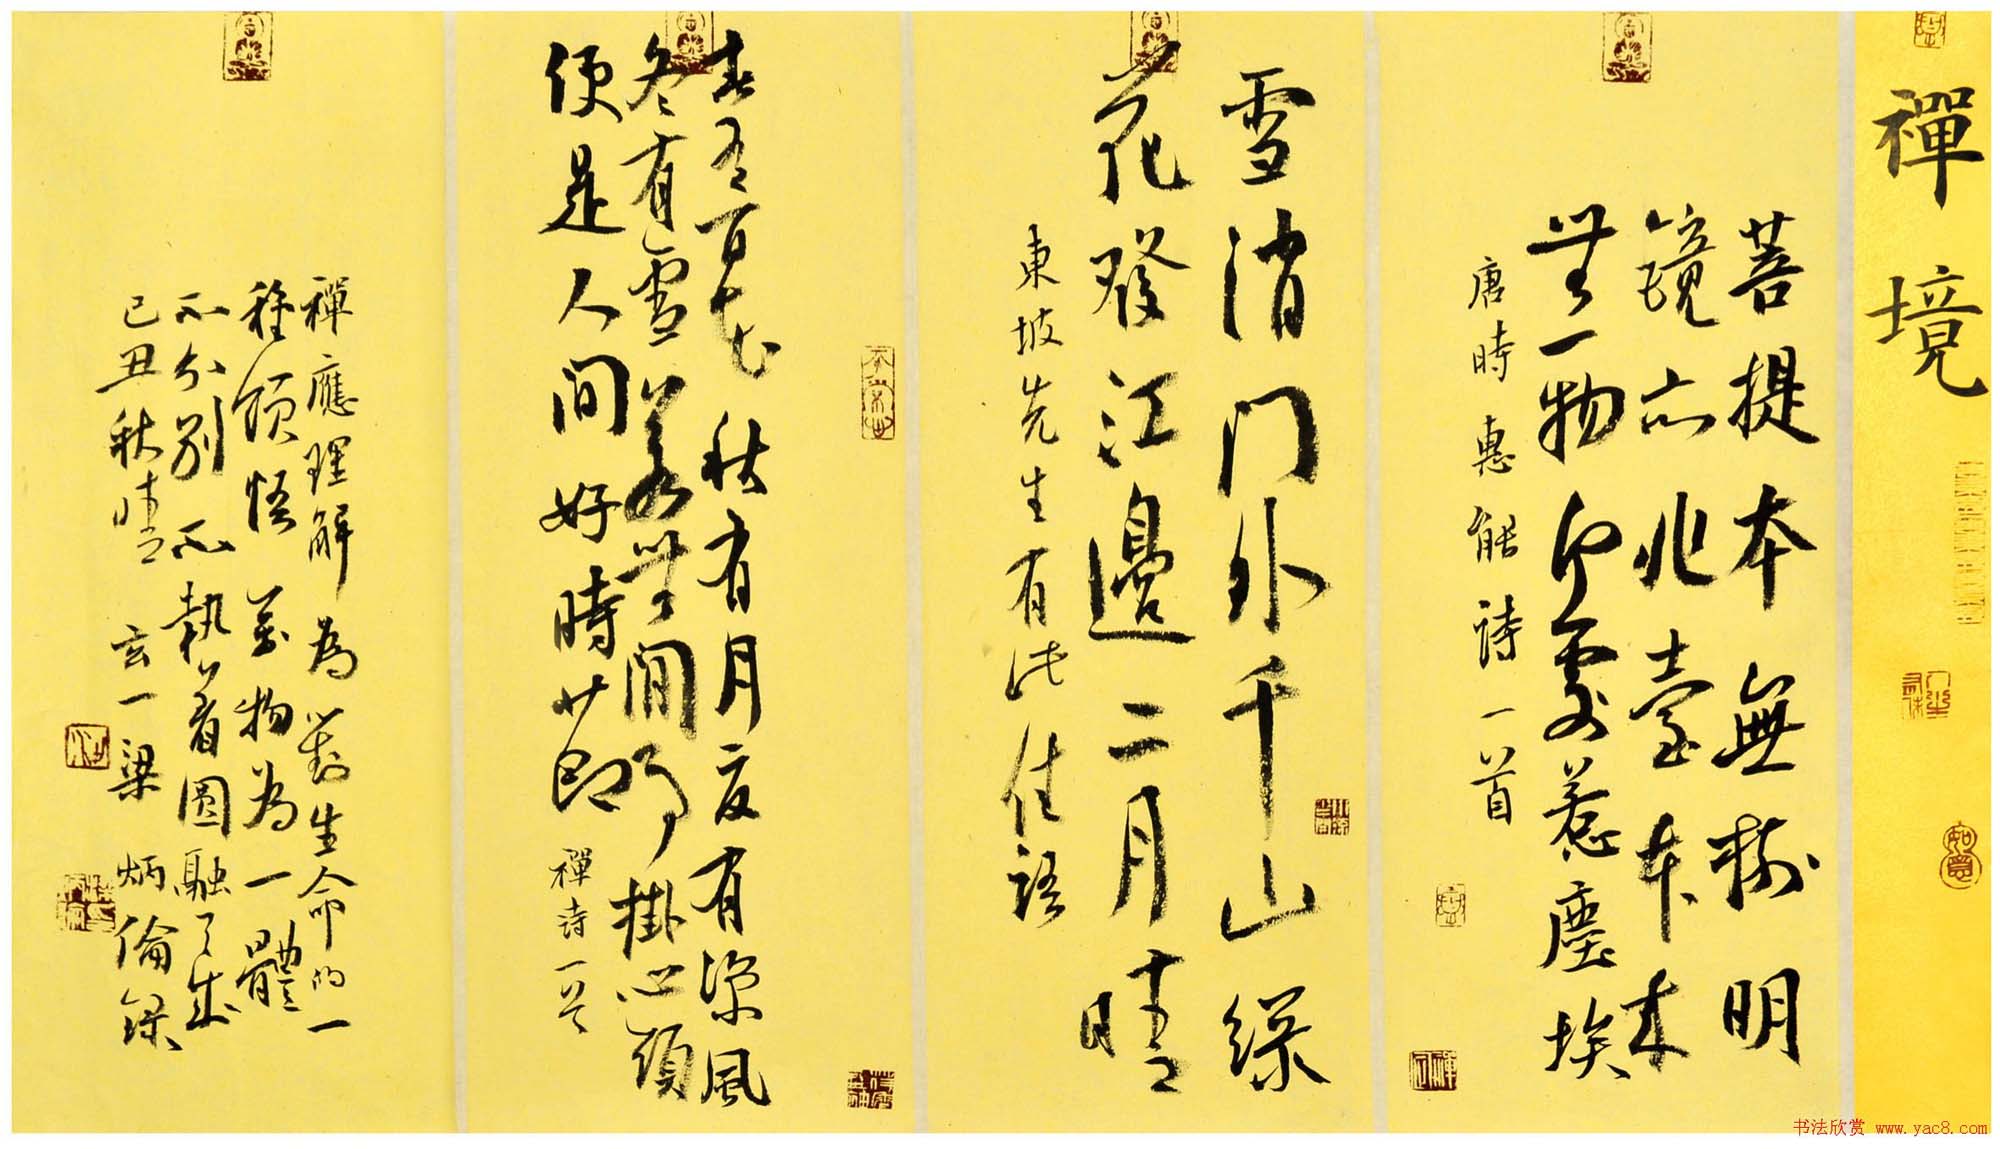 禪境
菩提本無樹明
鏡亦非臺本來
無一物何處惹塵埃
唐時惠能詩一首
雪消門外千山綠
花發江邊二月晴
東坡先生有此佳語
春有百花秋有月夏有涼風
冬有雪若無閒事掛心頭
便是人間好時節
禪詩一首
禪應理解為對生命的一
種領悟萬物為一體
不分別不執着圓融
己丑秋晴玄一梁炳倫錄
如意
书法欣赏 www.yac8.com